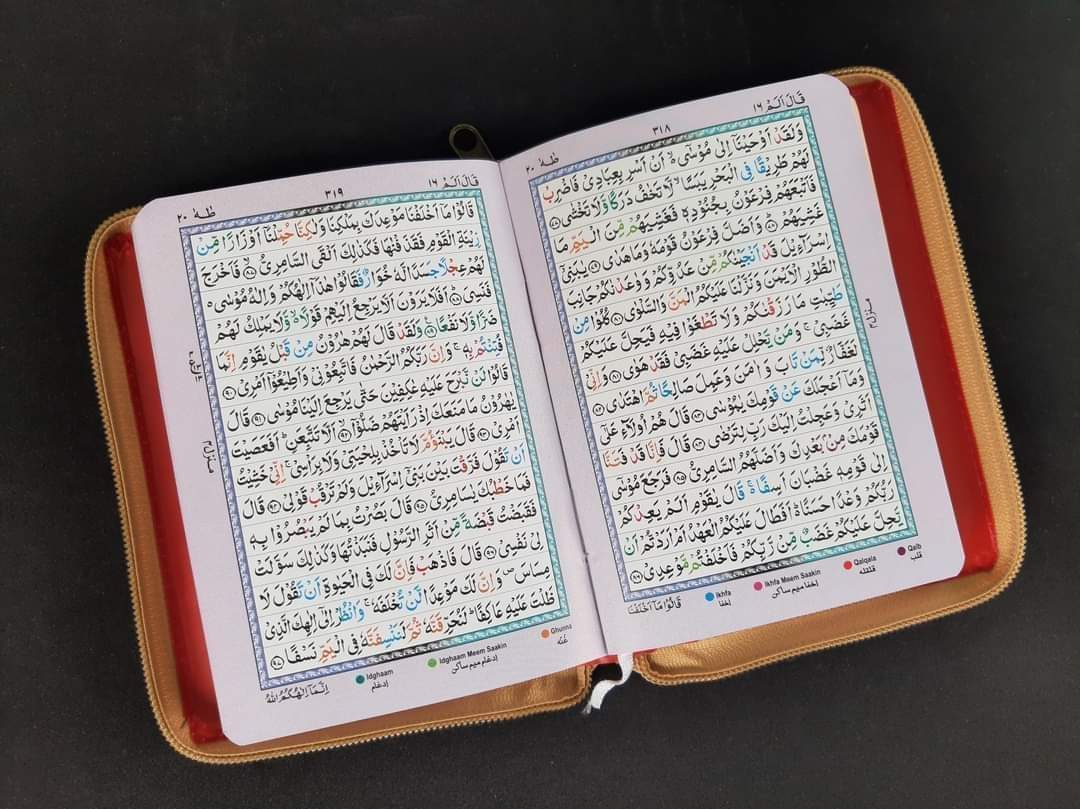 قَالَ اَلَمْ ١٦
٣١٨
طٰهٰ ٢٠
وَلَقَدْ اَوْحَيْنَاۤ اِلٰى مُوْسٰۤى ۙ اَنْ اَسْرِ بِعِبَادِىْ فَاضْرِبْ
لَهُمْ طَرِيْقًا فِى الْبَحْرِ يَبَسًا ۙ لَّا تَخٰفُ دَرَكًا وَّلَا تَخْشٰى ﴿۷۷﴾
فَاَتْبَعَهُمْ فِرْعَوْنُ بِجُنُوْدِهٖ فَغَشِيَهُمْ مِّنَ الْيَمِّ مَا
غَشِيَهُمْ ﴿۷۸﴾ وَاَضَلَّ فِرْعَوْنُ قَوْمَهٗ وَمَا هَدٰى ﴿۷۹﴾ يٰبَنِىْۤ
اِسْرَآءِيْلَ قَدْ اَنْجَيْنٰكُمْ مِّنْ عَدُوِّكُمْ وَوٰعَدْنٰكُمْ جَانِبَ
الطُّوْرِ الْاَيْمَنَ وَنَزَّلْنَا عَلَيْكُمُ الْمَنَّ وَالسَّلْوٰى ﴿۸۰﴾ كُلُوْا مِنْ
طَيِّبٰتِ مَا رَزَقْنٰكُمْ وَلَا تَطْغَوْا فِيْهِ فَيَحِلَّ عَلَيْكُمْ
غَضَبِىْ ۚ وَمَنْ يَّحْلِلْ عَلَيْهِ غَضَبِىْ فَقَدْ هَوٰى ﴿۸۱﴾ وَاِنِّىْ
لَغَفَّارٌ لِّمَنْ تَابَ وَاٰمَنَ وَعَمِلَ صَالِحًا ثُمَّ اهْتَدٰى ﴿۸۲﴾
وَمَاۤ اَعْجَلَكَ عَنْ قَوْمِكَ يٰمُوْسٰى ﴿۸۳﴾ قَالَ هُمْ اُولَآءِ عَلٰۤى
اَثَرِىْ وَعَجِلْتُ اِلَيْكَ رَبِّ لِتَرْضٰى ﴿۸۴﴾ قَالَ فَاِنَّا قَدْ فَتَنَّا
قَوْمَكَ مِنْۢ بَعْدِكَ وَاَضَلَّهُمُ السَّامِرِىُّ ﴿۸۵﴾ فَرَجَعَ مُوْسٰۤى
اِلٰى قَوْمِهٖ غَضْبَانَ اَسِفًا ۚ قَالَ يٰقَوْمِ اَلَمْ يَعِدْكُمْ
رَبُّكُمْ وَعْدًا حَسَنًا ۬ؕ اَفَطَالَ عَلَيْكُمُ الْعَهْدُ اَمْ اَرَدْتُّمْ اَنْ
يَّحِلَّ عَلَيْكُمْ غَضَبٌ مِّنْ رَّبِّكُمْ فَاَخْلَفْتُمْ مَّوْعِدِىْ ﴿۸۶﴾
قَالُوْا مَاۤ اَخْلَفْنَا
Ikhfa
إخفا
Ikhfa Meem Saakin
إخفا ميم ساكن
Qalqala
قلقله
Qalb
قلب
قَالَ اَلَمْ ١٦
٣١٩
طٰهٰ ٢٠
قَالُوْا مَاۤ اَخْلَفْنَا مَوْعِدَكَ بِمَلْكِنَا وَلٰكِنَّا حُمِّلْنَاۤ اَوْزَارًا مِّنْ
زِيْنَةِ الْقَوْمِ فَقَذَفْنٰهَا فَكَذٰلِكَ اَلْقَى السَّامِرِىُّ ﴿۸۷﴾ فَاَخْرَجَ
لَهُمْ عِجْلًا جَسَدًا لَّهٗ خُوَارٌ فَقَالُوْا هٰذَاۤ اِلٰهُكُمْ وَاِلٰهُ مُوْسٰى ۬
فَنَسِىَ ﴿۸۸﴾ اَفَلَا يَرَوْنَ اَلَّا يَرْجِعُ اِلَيْهِمْ قَوْلًا ۙ وَّلَا يَمْلِكُ لَهُمْ
ضَرًّا وَّلَا نَفْعًا ﴿۸۹﴾ وَلَقَدْ قَالَ لَهُمْ هٰرُوْنُ مِنْ قَبْلُ يٰقَوْمِ اِنَّمَا
فُتِنْتُمْ بِهٖ ۚ وَاِنَّ رَبَّكُمُ الرَّحْمٰنُ فَاتَّبِعُوْنِىْ وَاَطِيْعُوْۤا اَمْرِىْ ﴿۹۰﴾
قَالُوْا لَنْ نَّبْرَحَ عَلَيْهِ عٰكِفِيْنَ حَتّٰى يَرْجِعَ اِلَيْنَا مُوْسٰى ﴿۹۱﴾ قَالَ
يٰهٰرُوْنُ مَا مَنَعَكَ اِذْ رَاَيْتَهُمْ ضَلُّوْۤا ﴿۹۲﴾ اَلَّا تَتَّبِعَنِ ؕ اَفَعَصَيْتَ
اَمْرِىْ ﴿۹۳﴾ قَالَ يَبْنَؤُمَّ لَا تَاْخُذْ بِلِحْيَتِىْ وَلَا بِرَاْسِىْ ۚ اِنِّىْ خَشِيْتُ
اَنْ تَقُوْلَ فَرَّقْتَ بَيْنَ بَنِىْۤ اِسْرَآءِيْلَ وَلَمْ تَرْقُبْ قَوْلِىْ ﴿۹۴﴾ قَالَ
فَمَا خَطْبُكَ يٰسَامِرِىُّ ﴿۹۵﴾ قَالَ بَصُرْتُ بِمَا لَمْ يَبْصُرُوْا بِهٖ
فَقَبَضْتُ قَبْضَةً مِّنْ اَثَرِ الرَّسُوْلِ فَنَبَذْتُهَا وَكَذٰلِكَ سَوَّلَتْ
لِىْ نَفْسِىْ ﴿۹۶﴾ قَالَ فَاذْهَبْ فَاِنَّ لَكَ فِى الْحَيٰوةِ اَنْ تَقُوْلَ لَا
مِسَاسَ ۪ وَاِنَّ لَكَ مَوْعِدًا لَّنْ تُخْلَفَهٗ ۚ وَانْظُرْ اِلٰۤى اِلٰهِكَ الَّذِىْ
ظَلْتَ عَلَيْهِ عَاكِفًا ؕ لَنُحَرِّقَنَّهٗ ثُمَّ لَنَنْسِفَنَّهٗ فِى الْيَمِّ نَسْفًا ﴿۹۷﴾
اِنَّمَاۤ اِلٰهُكُمُ اللّٰهُ
Idghaam
إدغام
Idghaam Meem Saakin
إدغام ميم ساكن
Ghunna
غنّه